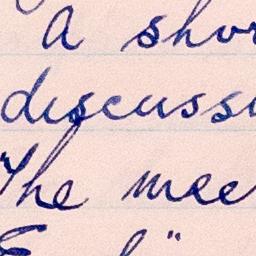 A shor
discussi
The mee